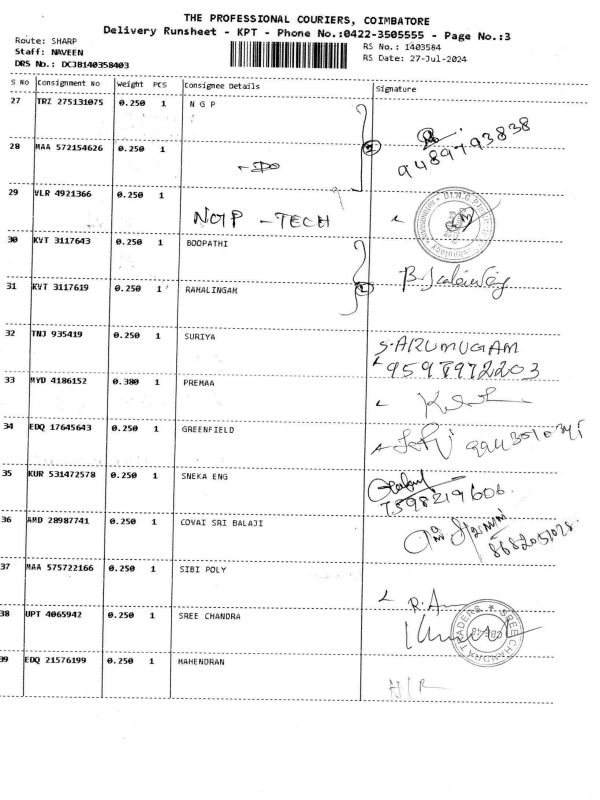 THE PROFESSIONAL COURIERS, COIMBATORE
Delivery Runsheet - KPT - Phone No.:0422-3505555 - Page No.:3
Route: SHARP
RS No.: 1403584
Staff: NAVEEN
RS Date: 27-Jul-2024
DRS No.: DCJB140358403
S No Consignment No Weight PCS Consignee Details Signature
27 TRZ 275131075 0.250 1 N G P
9489793838
28 MAA 572154626 0.250 1
29 VLR 4921366 0.250 1
NGP - TECH
30 KVT 3117643 0.250 1 BOOPATHI
31 KVT 3117619 0.250 1 RAMALINGAM
32 TNJ 935419 0.250 1 SURIYA
S.ARUMUGAM
33 MYD 4186152 0.380 1 PREMAA
34 EDQ 17645643 0.250 1 GREENFIELD
35 KUR 531472578 0.250 1 SNEKA ENG
7598219606
36 AMD 28987741 0.250 1 COVAI SRI BALAJI
37 MAA 575722166 0.250 1 SIBI POLY
38 UPT 4065942 0.250 1 SREE CHANDRA
SREE CHANDRA TRADERS
39 EDQ 21576199 0.250 1 MAHENDRAN